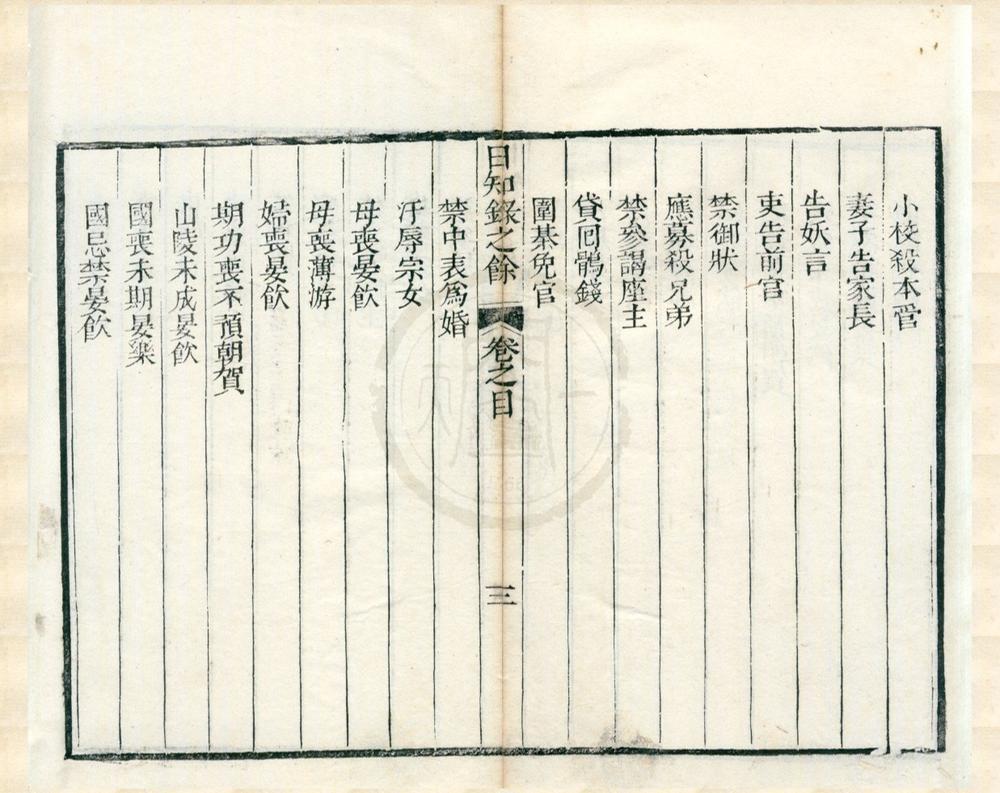 小校殺本管
妻子告家長
告妖言
吏告前官
禁御狀
應募殺兄弟
禁參謁座主
貸回鶻錢
圍棊免官
日知錄之餘 卷之目 三
禁中表爲婚
汙辱宗女
母喪晏飲
母喪薄游
婦喪晏飲
期功喪不預朝賀
山陵未成晏飲
國喪未期晏樂
國忌禁晏飲